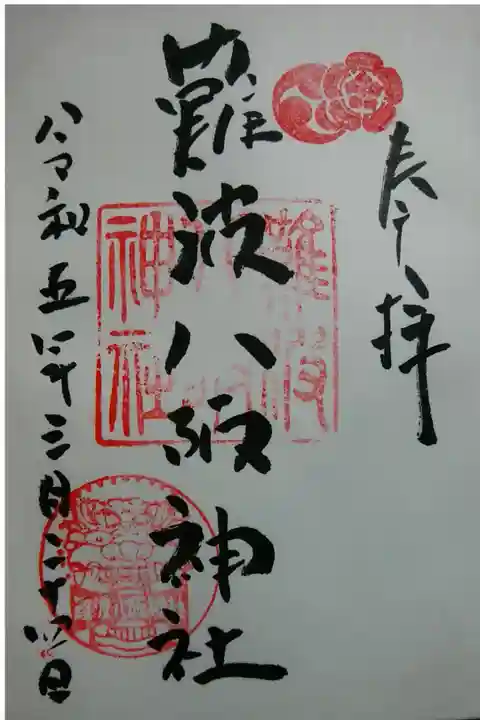 奉拝
難波八阪神社
難波八阪神社
令和五年三月二十四日